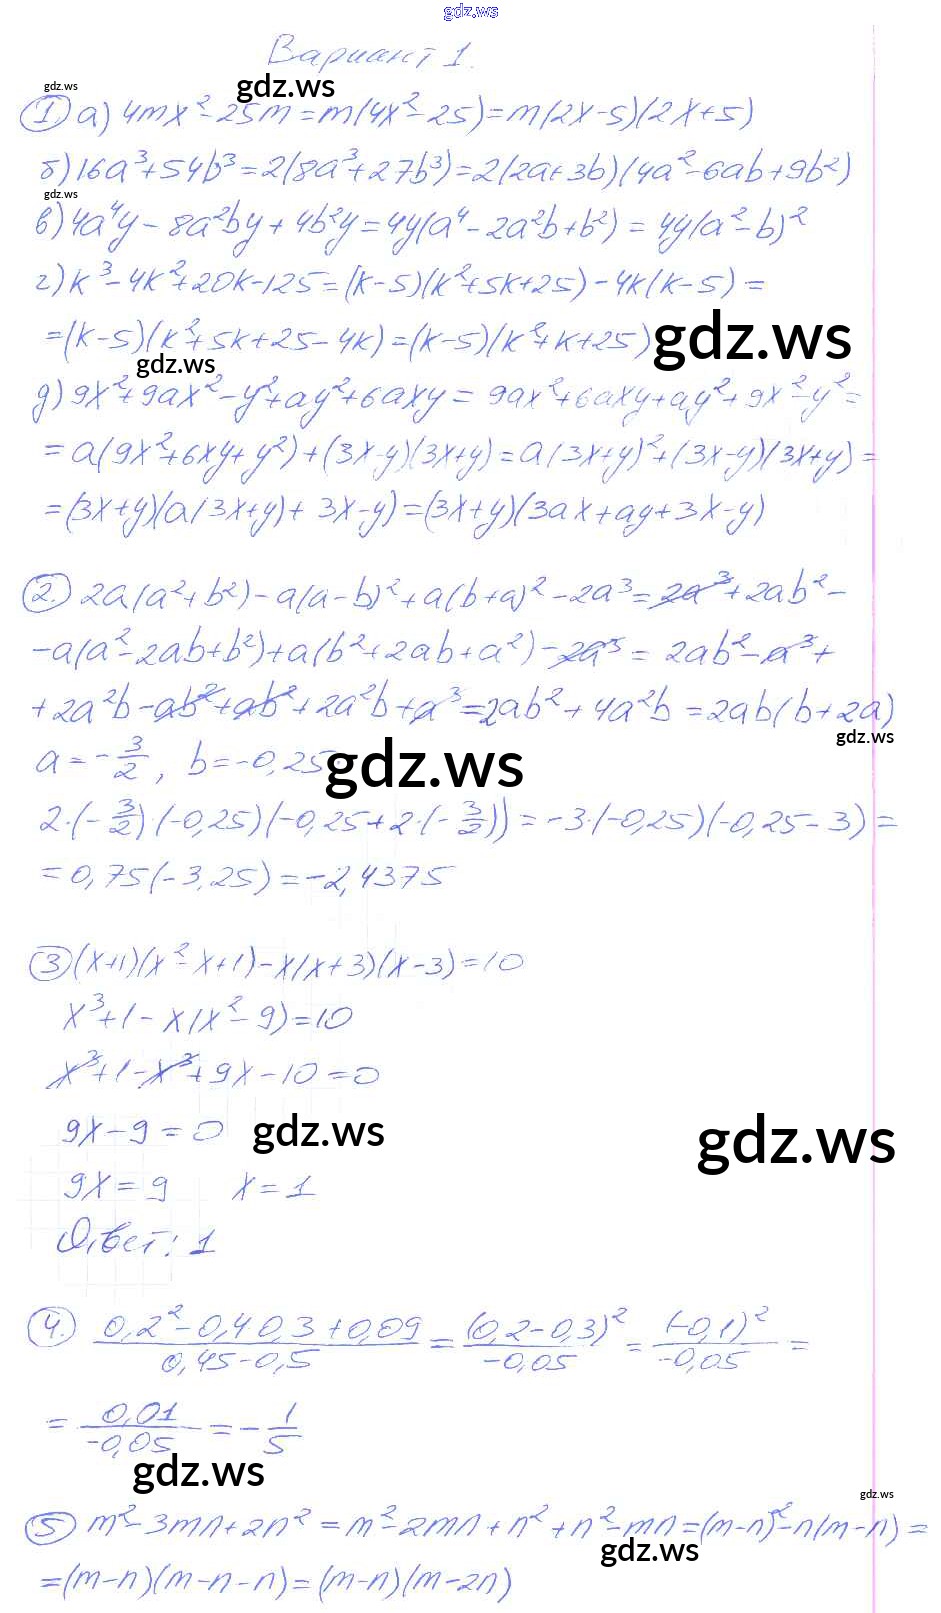 gdz.ws
Вариант 1.
gdz.ws
gdz.ws
① а) 4mx² - 25m = m(4x² - 25) = m(2x-5)(2x+5)
б) 16a³ + 54b³ = 2(8a³ + 27b³) = 2(2a+3b)(4a² - 6ab + 9b²)
gdz.ws
в) 4a⁴y - 8a²by + 4b²y = 4y(a⁴ - 2a²b + b²) = 4y(a² - b)²
г) k³ - 4k² + 20k - 125 = (k-5)(k² + 5k + 25) - 4k(k-5) =
= (k-5)(k² + 5k + 25 - 4k) = (k-5)(k² + k + 25)
gdz.ws
gdz.ws
д) 9x² + 9ax² - y² + ay² + 6axy = 9ax² + 6axy + ay² + 9x² - y² =
= a(9x² + 6xy + y²) + (3x-y)(3x+y) = a(3x+y)² + (3x-y)(3x+y) =
= (3x+y)(a(3x+y) + 3x-y) = (3x+y)(3ax + ay + 3x - y)
②. 2a(a² + b²) - a(a-b)² + a(b+a)² - 2a³ = 2a³ + 2ab² -
- a(a² - 2ab + b²) + a(b² + 2ab + a²) - 2a³ = 2ab² - a³ +
+ 2a²b - ab² + ab² + 2a²b + a³ = 2ab² + 4a²b = 2ab(b+2a)
gdz.ws
a = -3/2, b = -0,25
gdz.ws
2·(-3/2)·(-0,25)(-0,25 + 2·(-3/2)) = -3·(-0,25)(-0,25 - 3) =
= 0,75(-3,25) = -2,4375
③ (x+1)(x² - x + 1) - x(x+3)(x-3) = 10
x³ + 1 - x(x² - 9) = 10
x³ + 1 - x³ + 9x - 10 = 0
9x - 9 = 0
gdz.ws
gdz.ws
9x = 9 x = 1
Ответ: 1
④. (0,2² - 0,4 0,3 + 0,09)/(0,45 - 0,5) = (0,2 - 0,3)²/(-0,05) = (-0,1)²/(-0,05) =
= 0,01/(-0,05) = -1/5
gdz.ws
gdz.ws
⑤ m² - 3mn + 2n² = m² - 2mn + n² + n² - mn = (m-n)² - n(m-n) =
gdz.ws
= (m-n)(m-n-n) = (m-n)(m-2n)